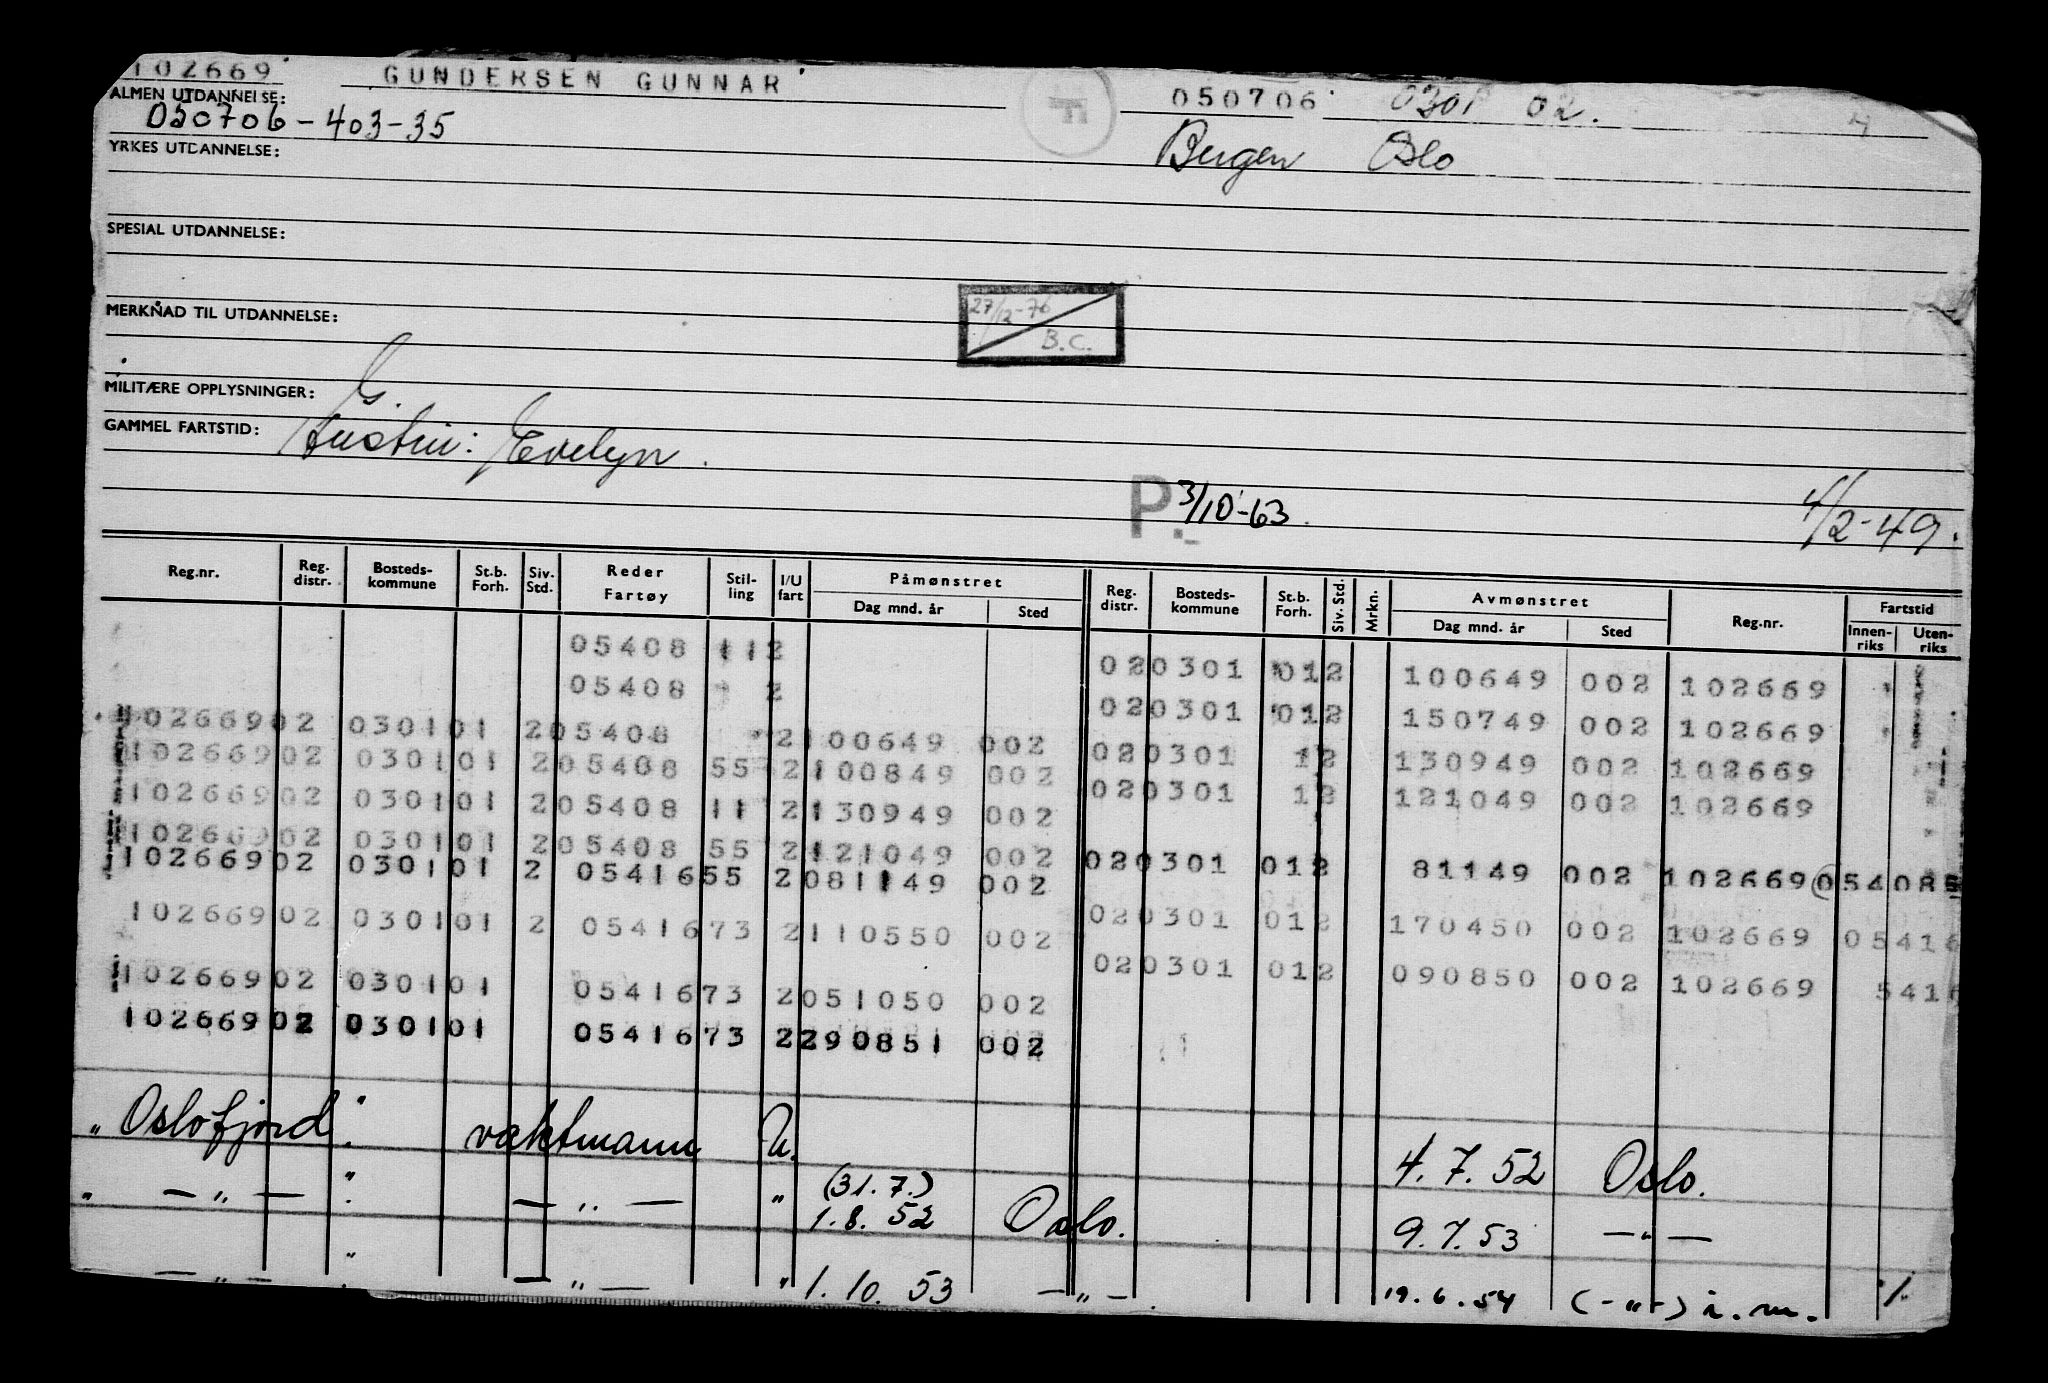 102669 GUNDERSEN GUNNAR 050706 0301 02.
ALMEN UTDANNELSE:
050706-403-35 Bergen Oslo
YRKES UTDANNELSE:
SPESIAL UTDANNELSE:
27/12-76
MERKNAD TIL UTDANNELSE:
B.C.
G.
MILITÆRE OPPLYSNINGER:
GAMMEL FARTSTID: Hustru: Evelyn.
P. 3/10-63. 4/2-49.
Reg.nr. Reg. distr. Bosteds-kommune St.b. Forh. Siv. Std. Reder Fartøy Stil-ling I/U fart Påmønstret Dag mnd. år Sted Reg. distr. Bosteds-kommune St.b. Forh. Siv. Std. Mrkn. Avmønstret Dag mnd. år Sted Reg.nr. Fartstid Innen-riks Uten-riks
05408 112 020301 012 100649 002 102669
05408 2 020301 012 150749 002 102669
10266902 030101 205408 2100649 002 020301 12 130949 002 102669
10266902 030101 205408 55 2100849 002 020301 12 121049 002 102669
10266902 030101 205408 11 2130949 002
10266902 030101 205408 55 2121049 002
10266902 030101 2 0541655 2081149 002 020301 012 81149 002 102669 054085
10266902 030101 2 0541673 2110550 002 020301 012 170450 002 102669 05416
10266902 030101 0541673 2051050 002 020301 012 090850 002 102669 5416
10266902 030101 0541673 2290851 002
"Oslofjord". vaktmann U. 4.7.52 Oslo.
" — " — ". — " — " (31.7.) 1.8.52 Oslo. 9.7.53 — " —
— " — ". — " — " 1.10.53 — " —. 19.6.54 (- " -) i.m. 1.